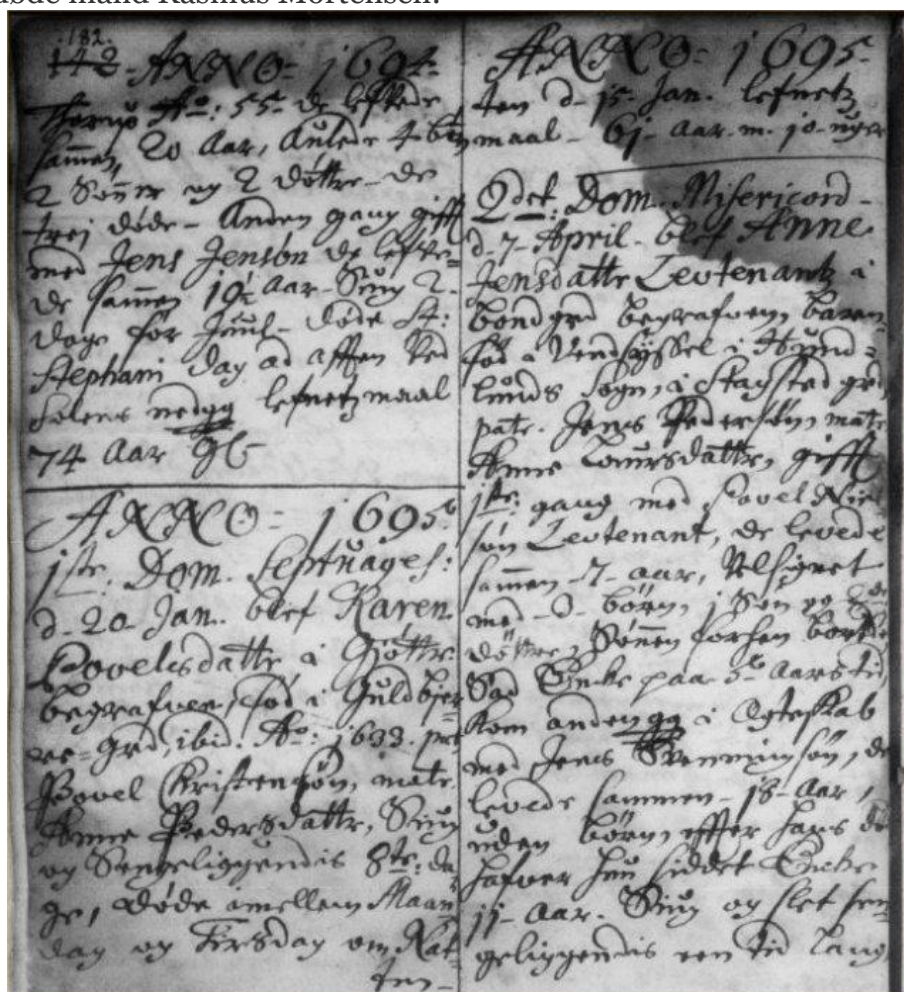 182.
142 - ANNO = 1694.
Ao: 55 - de lefvede
sammen 20 Aar, Aulede 4 børn
2 Sønner og 2 døttre - de
trej døde - Anden gang gifft
med Jens Jensøn de lefve=
de sammen 19½ Aar - Siug 2 -
dage før Juul - døde St:
Stephani dag ad afften ved
Solens nedgg lefnetz maal
74 Aar
ANNO = 1695.
1ste. Dom. Septuages:
d - 20 Jan. blef Karen
Povelsdattr i
begrafven, fød i Guldbjer
grd, ibid. Ao: 1633. patr
Povel Christensøn, matr.
Anne Pedersdattr, Siug
og Sengeliggendis 8te: da
ge, døde imellem Maan
dag og Tirsdag om Nat
ten -
ANNO = 1695.
ten d - 15 - Jan. lefnetz
maal - 61 - Aar - m. 10 - uger
2det: Dom. Misericord -
d - 7 - April - blef Anne
Jensdattr Leutenantz i
bondgrd begrafven, baaren
fød i Vendsÿssel i Hund=
lunds Sogn, i Stagsted grd,
patr. Jens Pedersøn, matr
Anne Laursdattr, gifft
1ste: gang med Povel
søn Leutenant, de levede
sammen - 7 - aar, Velsignet
med - 3 - børn, 1 Søn og 2de
døttre, Sønnen forhen
Sad Encke paa 3 Aars tid
kom anden gg i Egteskab
med Jens Svenningsøn, de
levede sammen - 18 - Aar,
uden børn, effter hans dø
hafver hun siddet Encke
11 - Aar. Siug og slet sen
geliggendis een tid lang